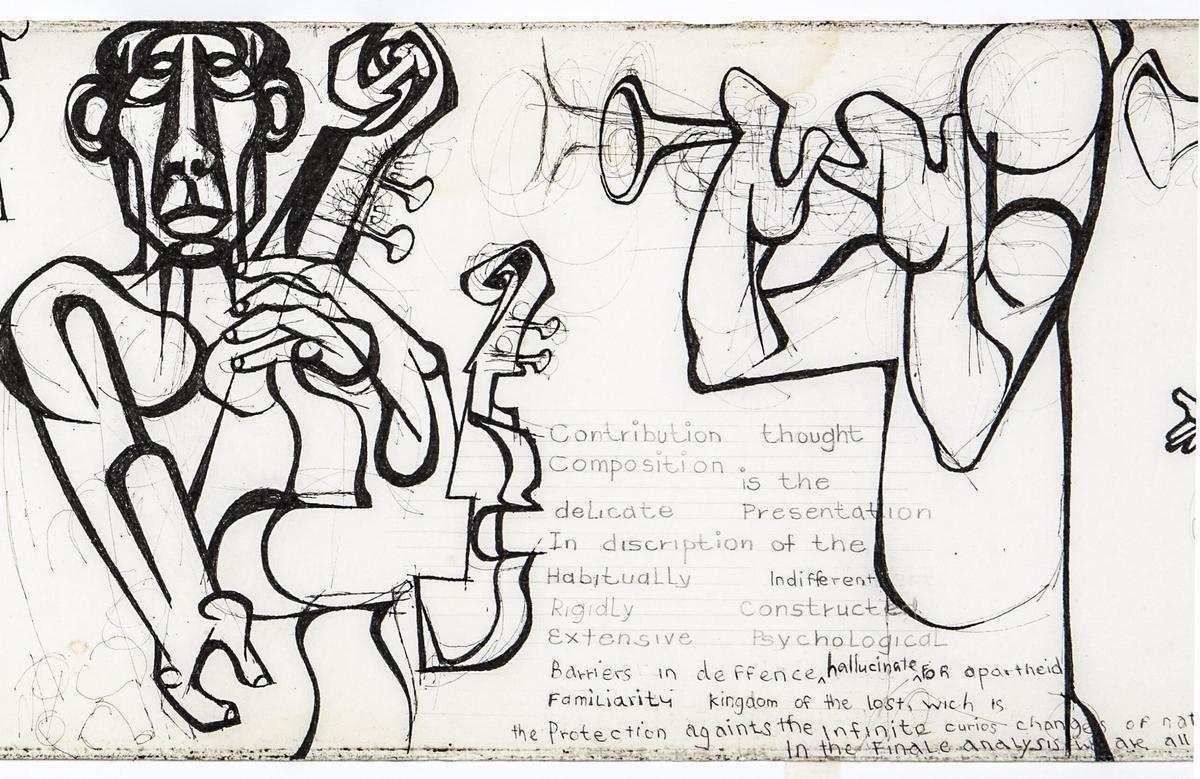 Contribution thought
Composition is the
delicate Presentation
In discription of the
Habitually Indifferent
Rigidly Constructed
Extensive Psychological
Barriers in deffence hallucinate for apartheid
Familiarity kingdom of the lost, wich is
the Protection againts the Infinite curios changes of nat
In the Finale analysis we are all